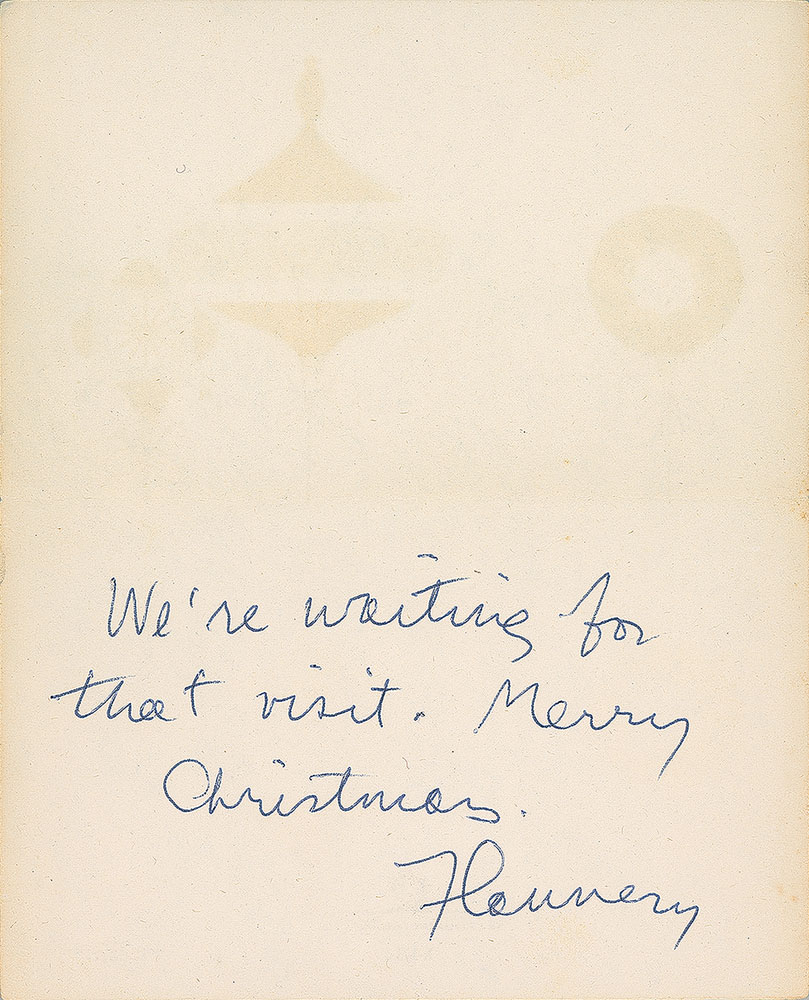 We're waiting for
that visit. Merry
Christmas.
Flannery